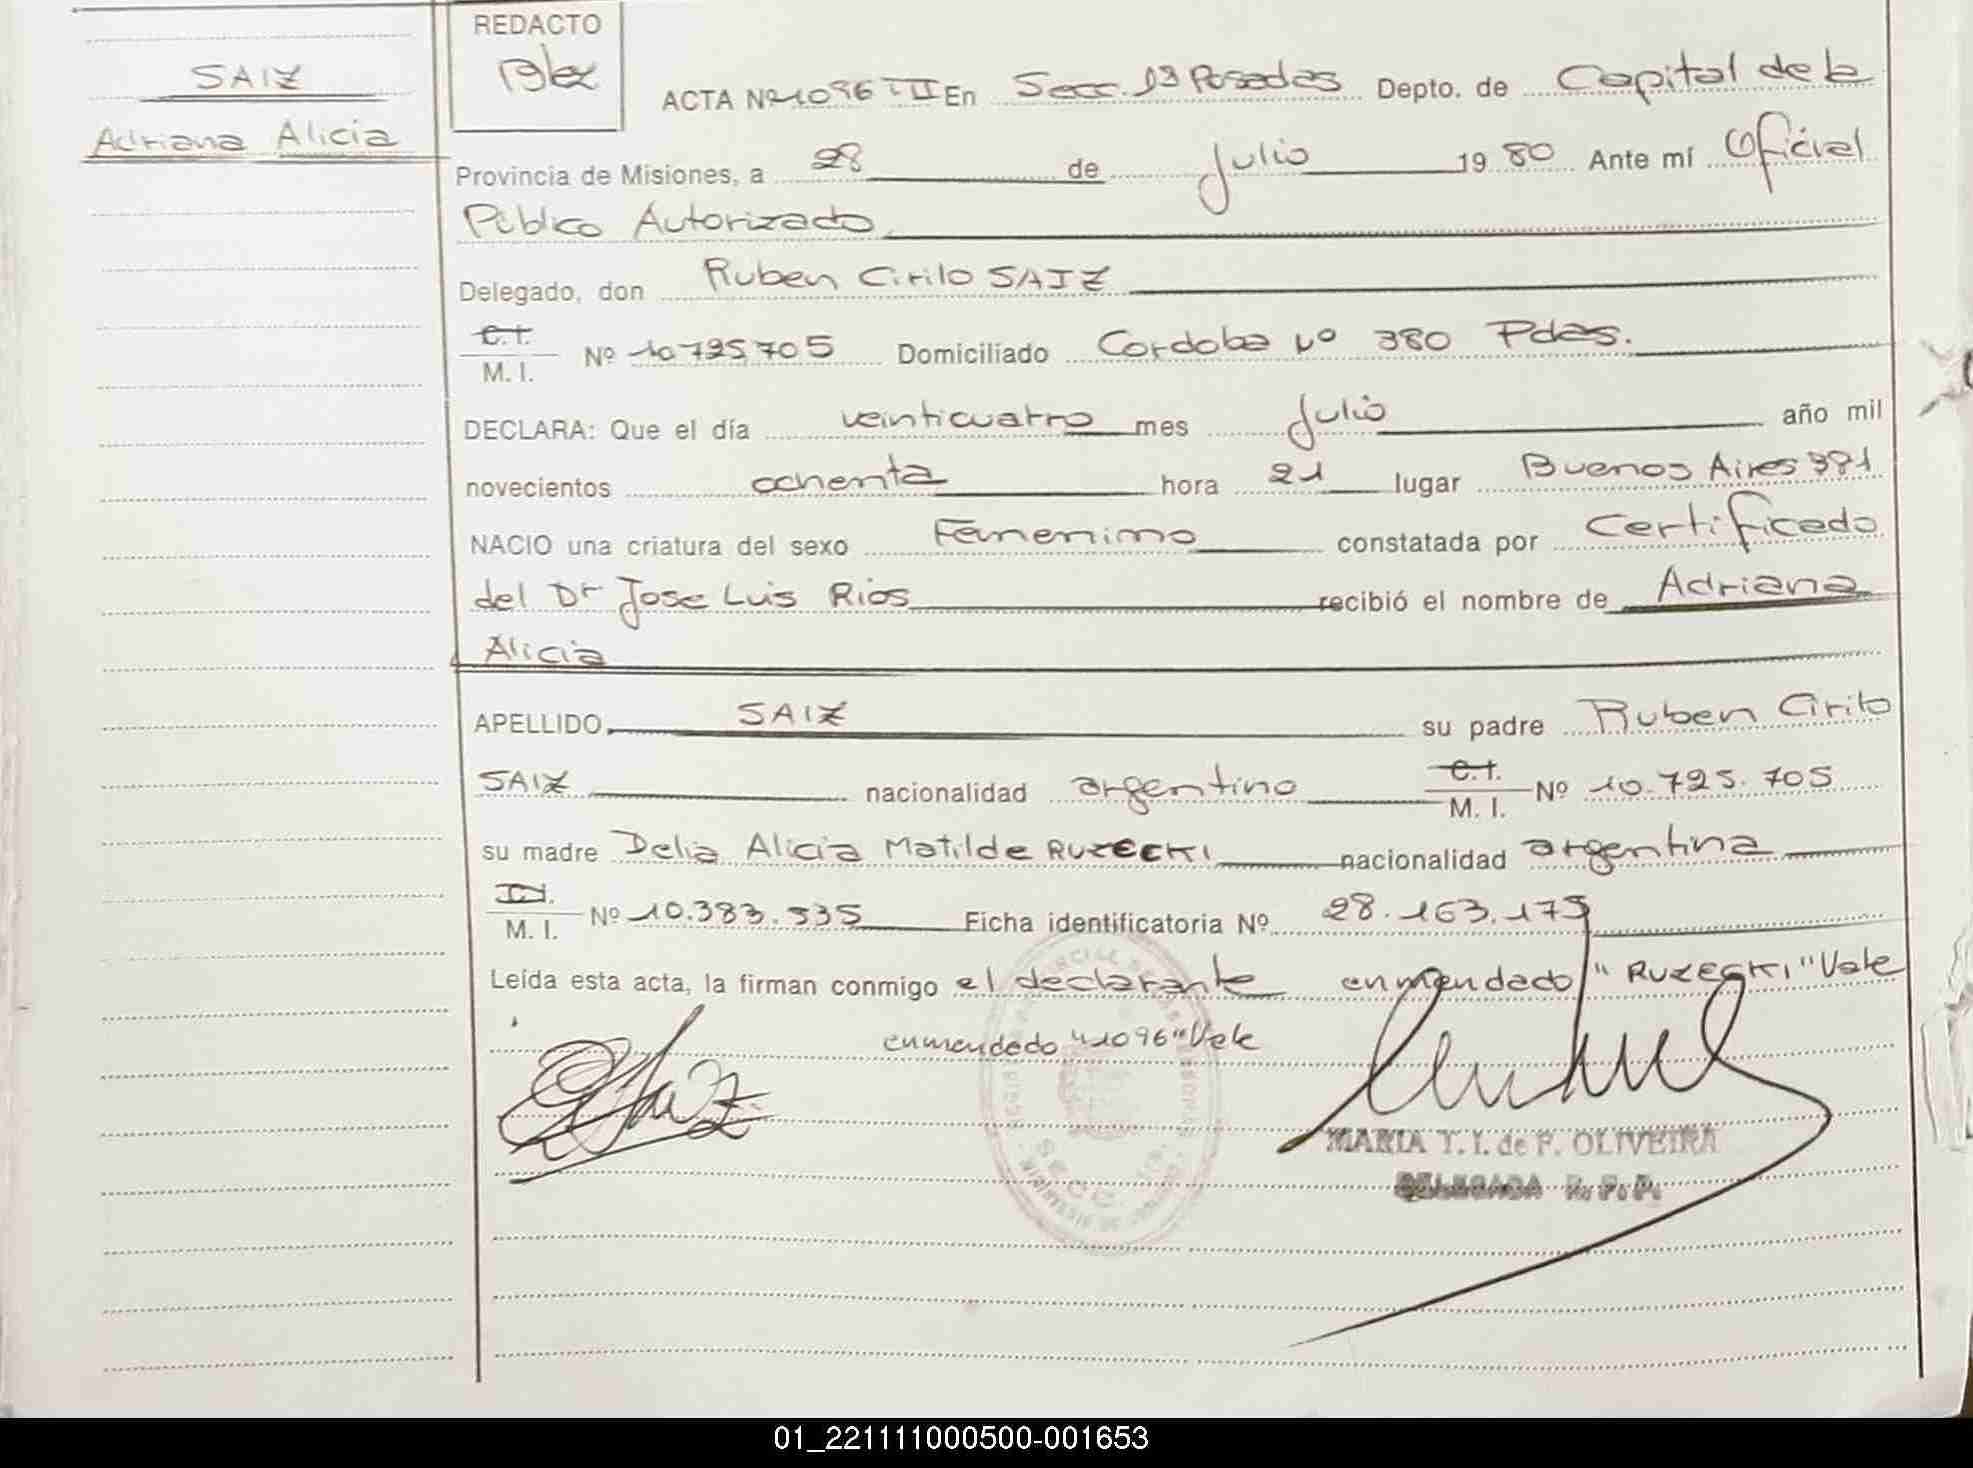 SAIZ
Adriana Alicia
REDACTO
ACTA Nº 1096 III En Secc. 1ª Posadas Depto. de Capital de la
Provincia de Misiones, a 28 de Julio 19 80 Ante mí Oficial
Público Autorizado
Delegado, don Ruben Cirilo SAIZ
C.I.
M. I. Nº 10.725.705 Domiciliado Cordoba Nº 380 Pdas.
DECLARA: Que el día veinticuatro mes Julio año mil
novecientos ochenta hora 21 lugar Buenos Aires 381
NACIO una criatura del sexo Femenimo constatada por Certificado
del Dr Jose Luis Rios recibió el nombre de Adriana
Alicia
APELLIDO SAIZ su padre Ruben Cirilo
SAIZ nacionalidad argentino C.I. M. I. Nº 10.725.705
su madre Delia Alicia Matilde RUZECKI nacionalidad argentina
M. I. Nº 10.383.535 Ficha identificatoria Nº 28.163.175
Leída esta acta, la firman conmigo el declarante enmendado "RUZECKI" Vale
enmendado "1096" Vale
SECC.
MARIA T. I. de F. OLIVEIRA
DELEGADA R. P. P.
01_221111000500-001653